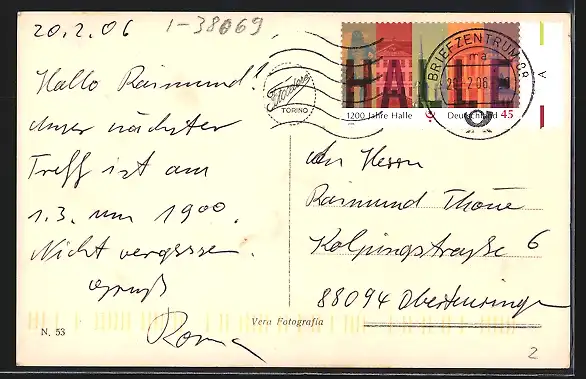 20.2.06
1-38069
Hallo Raimund!
Unser nächster
Treff ist am
1.3. um 19⁰⁰.
Nicht vergessen.
Gruß
Roma
N. 53
Vera Fotografia
TORINO
HALLE
1200 Jahre Halle
Deutschland 45
BRIEFZENTRUM 88
ma
20.-2.06
A
An Herrn
Raimund Thoue
Kolpingstraße 6
88094 Oberteuringen
2